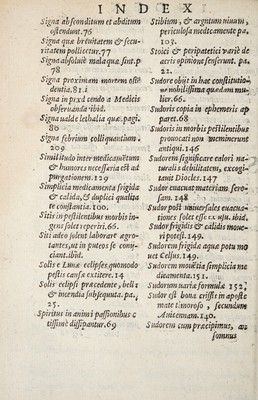 INDEX
Signa absconditum et abditum
ostendunt.76
Signa quæ breuitatem & secu-
ritatem pollicetur.77
Signa absolutè mala quæ sint.p
78
Signa proximam mortem ostē-
dentia.81.i
Signa in praxi cendo a Medicis
obseruanda ibid.
Signa ualde lethalia quæ? pagi.
80
Signa febrium colliquantum.
209
Similitudo inter medicamētum
& humores necessaria est ad
purgationem.129
Simplicia medicamenta frigida
& calida, & duplici qualita
te constantia.100.
Sitis in pestilentibus morbis in-
gens solet reperiri.66.
Siti adeo solent laborare ægro-
tantes, ut in puteos se conijc-
iant.ibid.
Solis e Lunæ eclipses quomodo
pestis causæ extitere.14
Solis eclipsi præcedente, bella
& incendia subsequuta. pa,
25.
Spiritus in animi passionibus ci
tissimè dissipantur.69
Stibium, & argentum uiuum,
periculosa medicamenta pa,
103.
Stoici & peripatetici variè de
aeris opinione senserunt. pa.
22.
Sudore obijt in hac constitutio-
ne nobilissima quædam mu-
lier.66.
Sudoris copia in ephemeris ap
paret.68
Sudoris in morbis pestilentibus
prouocati non meminerunt
antiqui.146
Sudorem significare calori na-
turalis debilitatem, excogi-
tauit Diocles.147
Sudor euacuat materiam sero-
sam.148
Sudor post uniuersales euacua-
tiones solet esse ex usu.ibid.
Sudor frigidis & calidis moue-
ri potest.149.
Sudorem frigida aqua potu mo
uet Celsus.149.
Sudorem mouētia simplicia me
dicamenta.151.
Sudorum uariæ formulæ 152,
Sudor est bona crisis in aposte
mate timoroso, secundum
Auicennam.140.
Sudorem cum præcipimus, an
somnus